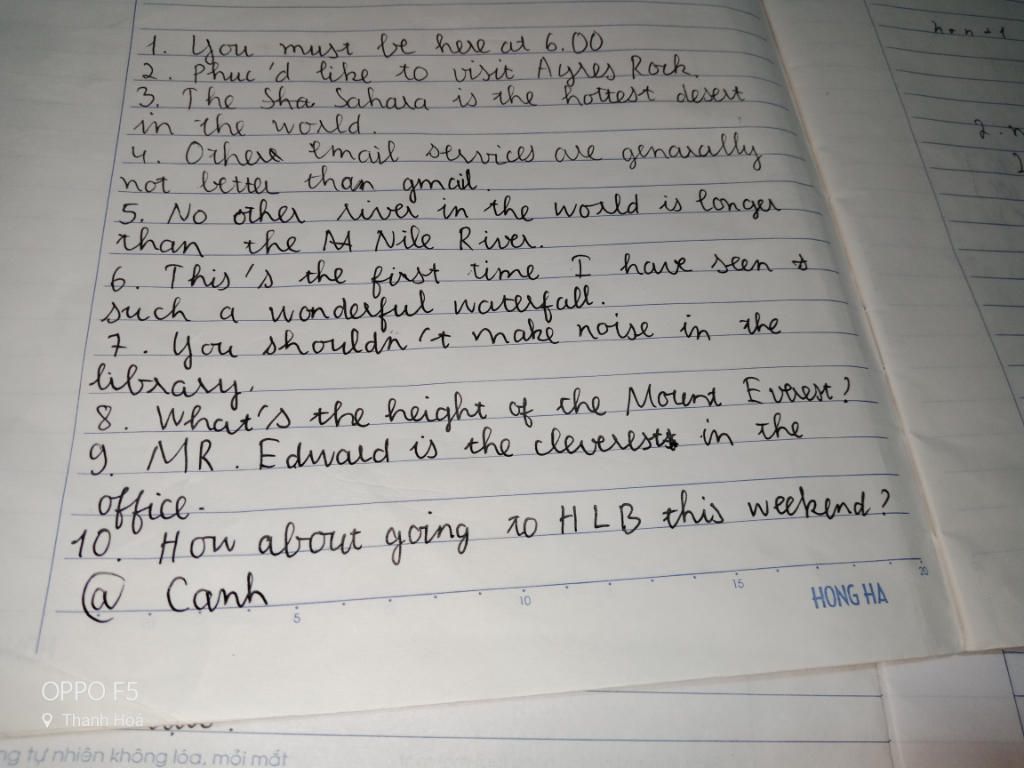 1. You must be here at 6.00
2. Phuc'd like to visit Ayres Rock.
3. The Sha Sahara is the hottest desert
in the world.
4. Others email services are genarally
not better than gmail.
5. No other river in the world is longer
than the Nile River.
6. This's the first time I have seen
such a wonderful waterfall.
7. You shouldn't make noise in the
library.
8. What's the height of the Mount Everest?
9. MR. Edward is the cleverest in the
office.
10. How about going to HLB this weekend?
@ Canh
5 10 15 20
HONG HA
OPPO F5
Thanh Hoá
ng tự nhiên không lóa, mỏi mắt